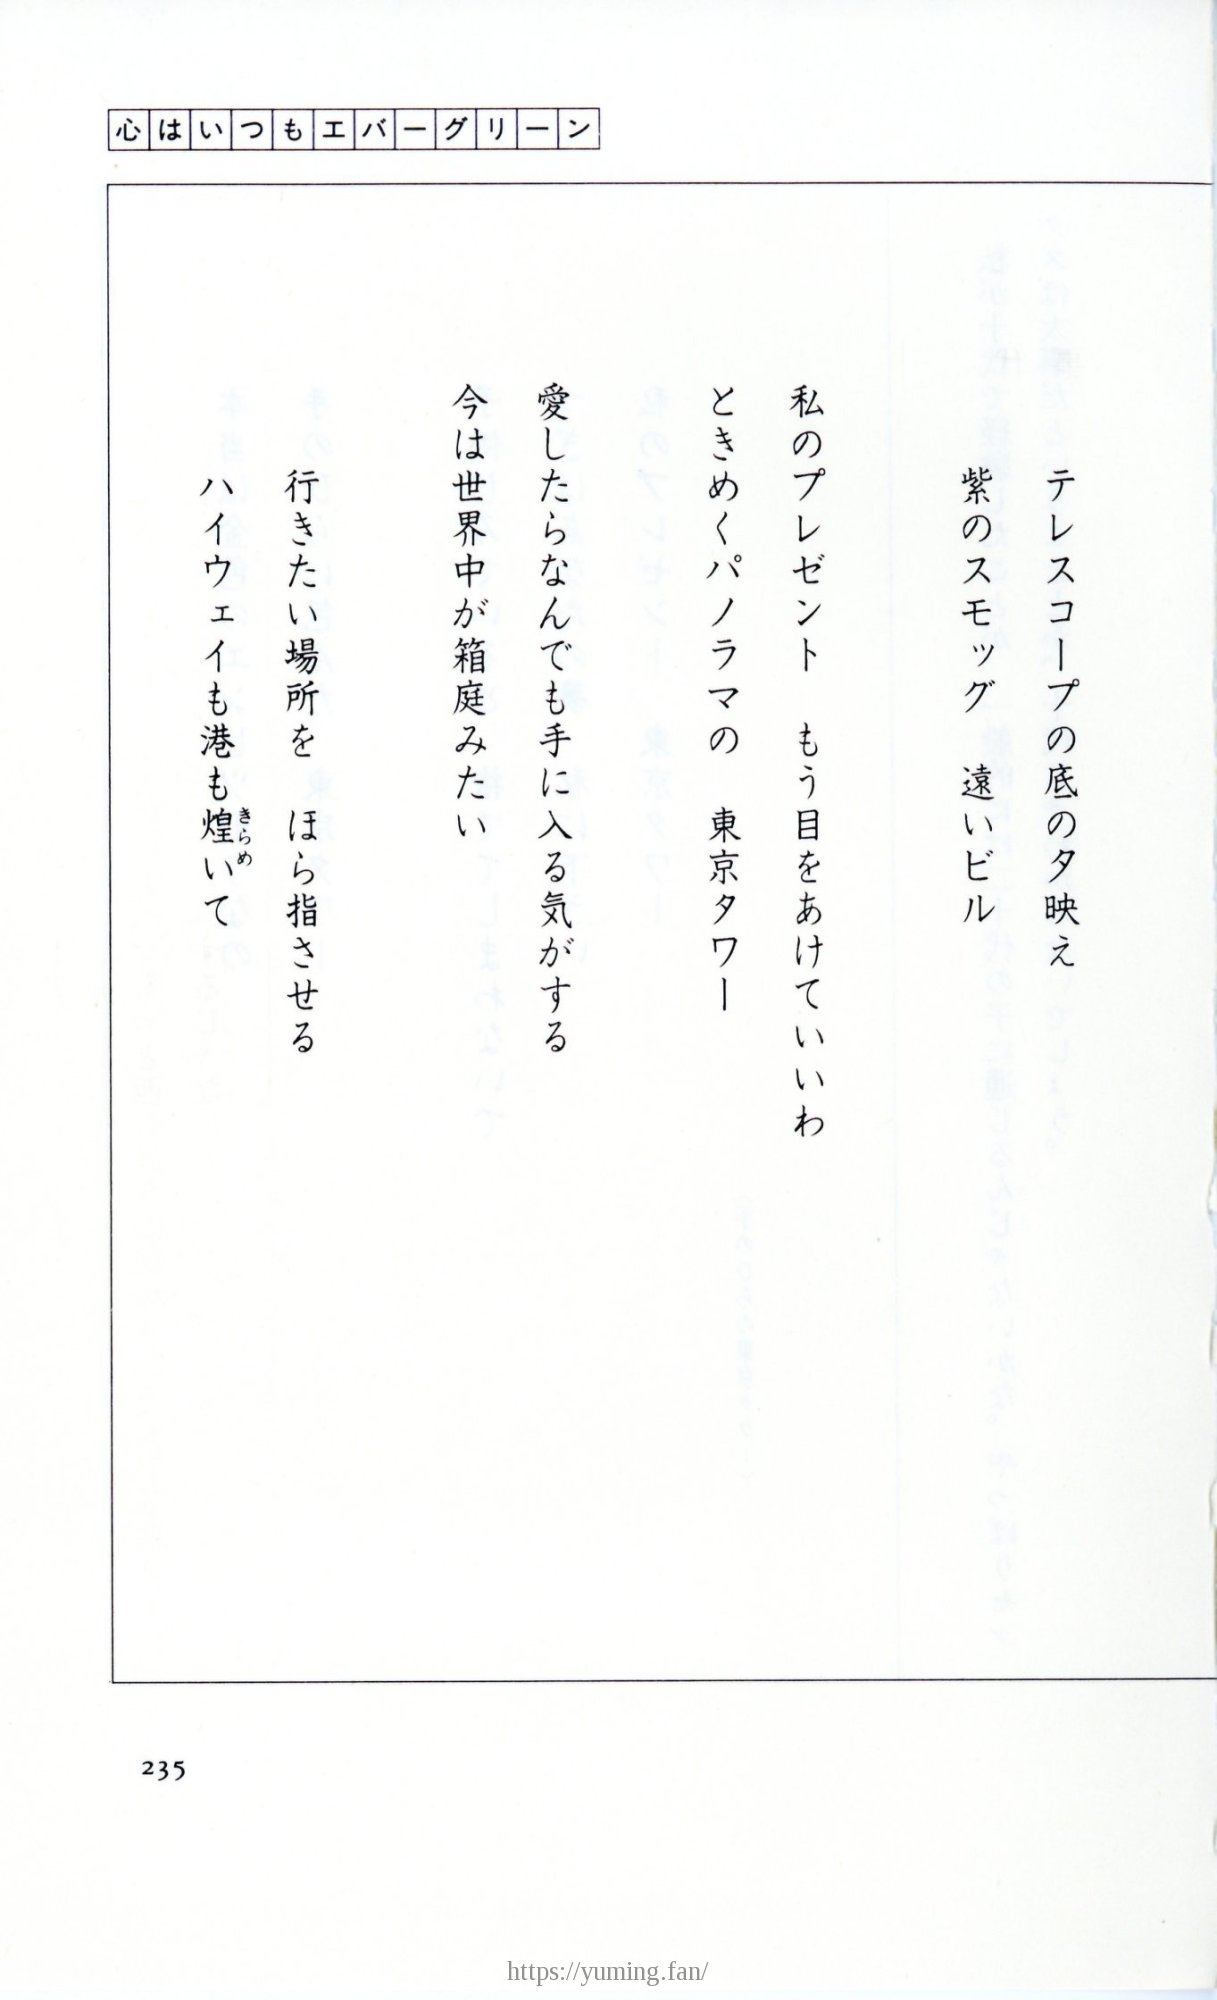 心はいつもエバーグリーン
テレスコープの底の夕映え
紫のスモッグ　遠いビル
私のプレゼント　もう目をあけていいわ
ときめくパノラマの　東京タワー
愛したらなんでも手に入る気がする
今は世界中が箱庭みたい
行きたい場所を　ほら指させる
ハイウェイも港も煌いて
きらめ
235
https://yuming.fan/